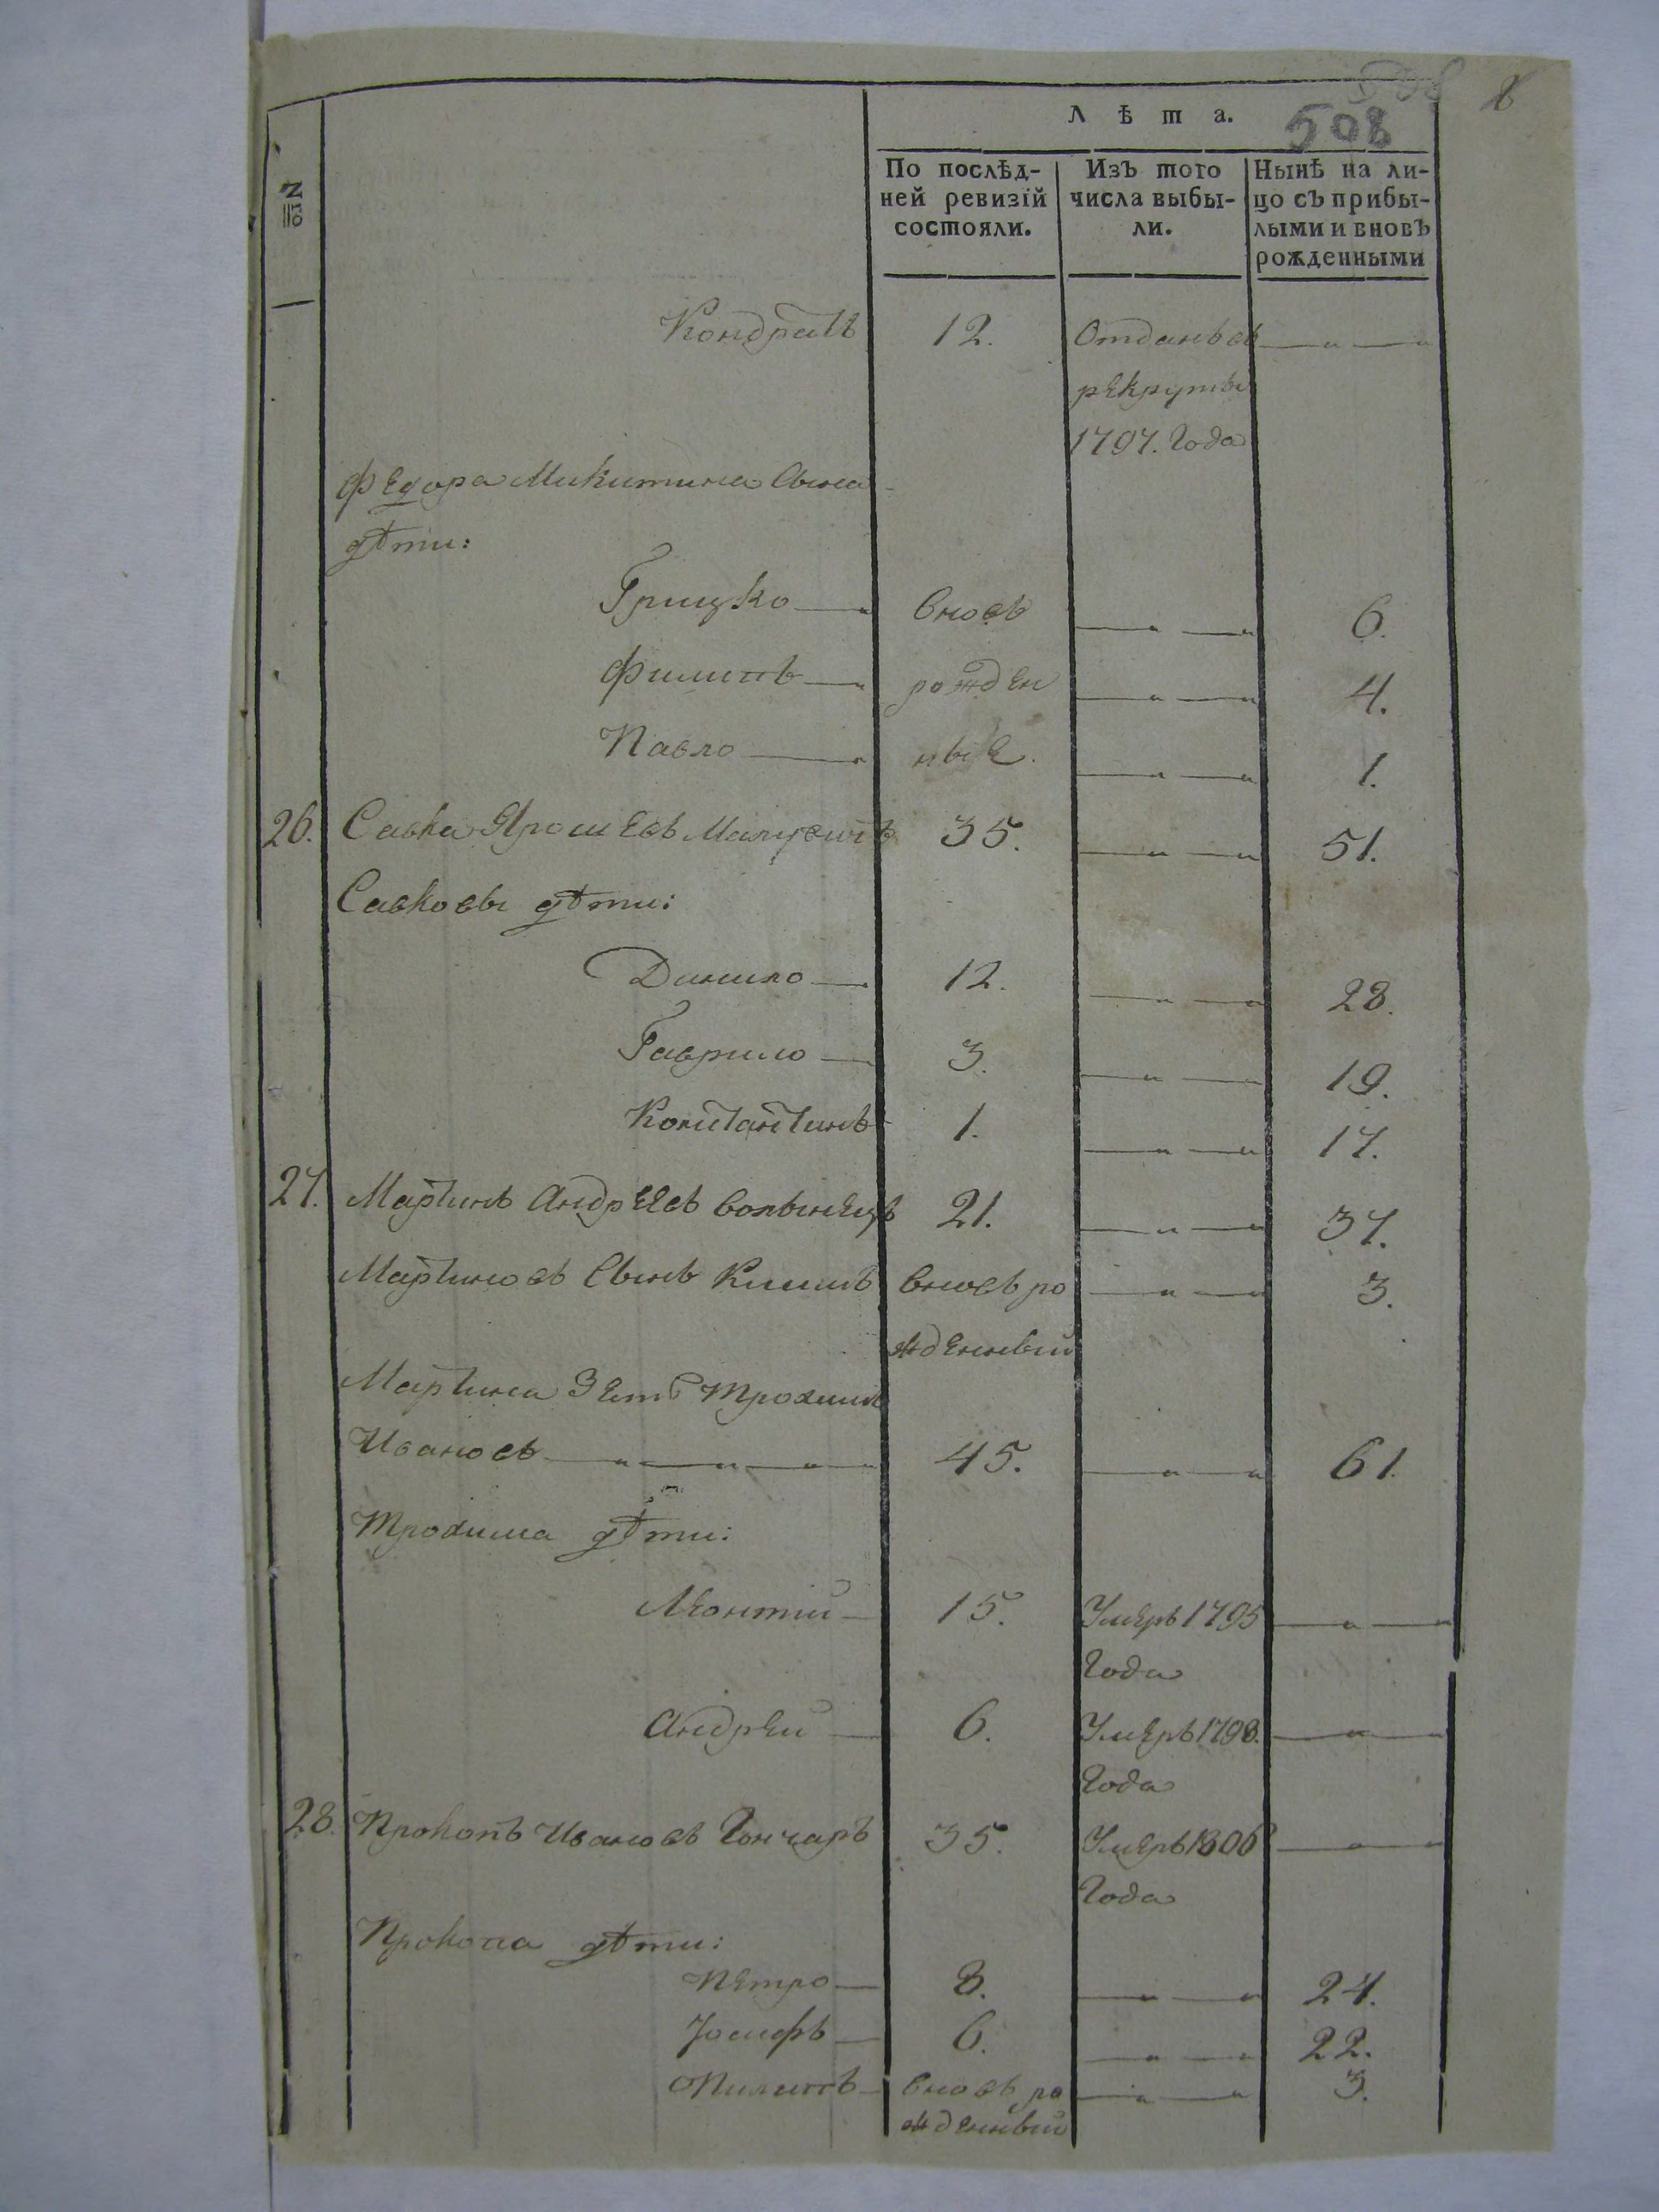 8
508
Лѣта.
№
По послѣд-
ней ревизій
состояли.
Изъ того
числа выбы-
ли.
Нынѣ на ли-
цо съ прибы-
лыми и вновь
рожденными
Кондратъ 12. Отданъ въ
рекруты
1797. Года
Федора Микитина сына
дѣти:
Грицко вновь 6.
Филипъ рожден 4.
Павло ные. 1.
26. Савка Ярошевъ 35. 51.
Савковы дѣти:
Данило 12. 28.
Гаврило 3. 19.
Константинъ 1. 17.
27. Мартинъ Андреевъ Волынецъ 21. 37.
Мартиновъ сынъ Климъ вновь ро 3.
жденный
Мартина Зеть Трохимъ
Ивановъ 45. 61.
Трохима дѣти:
Леонтий 15. Умеръ 1795
Года
Андрей 6. Умеръ 1798.
Года
28. Прокопъ Ивановъ Гончаръ 35. Умеръ 1806
Года
Прокопа дѣти:
Петро 8. 24.
Іосифъ 6. 22.
Пилипъ вновь ро 3.
жденный